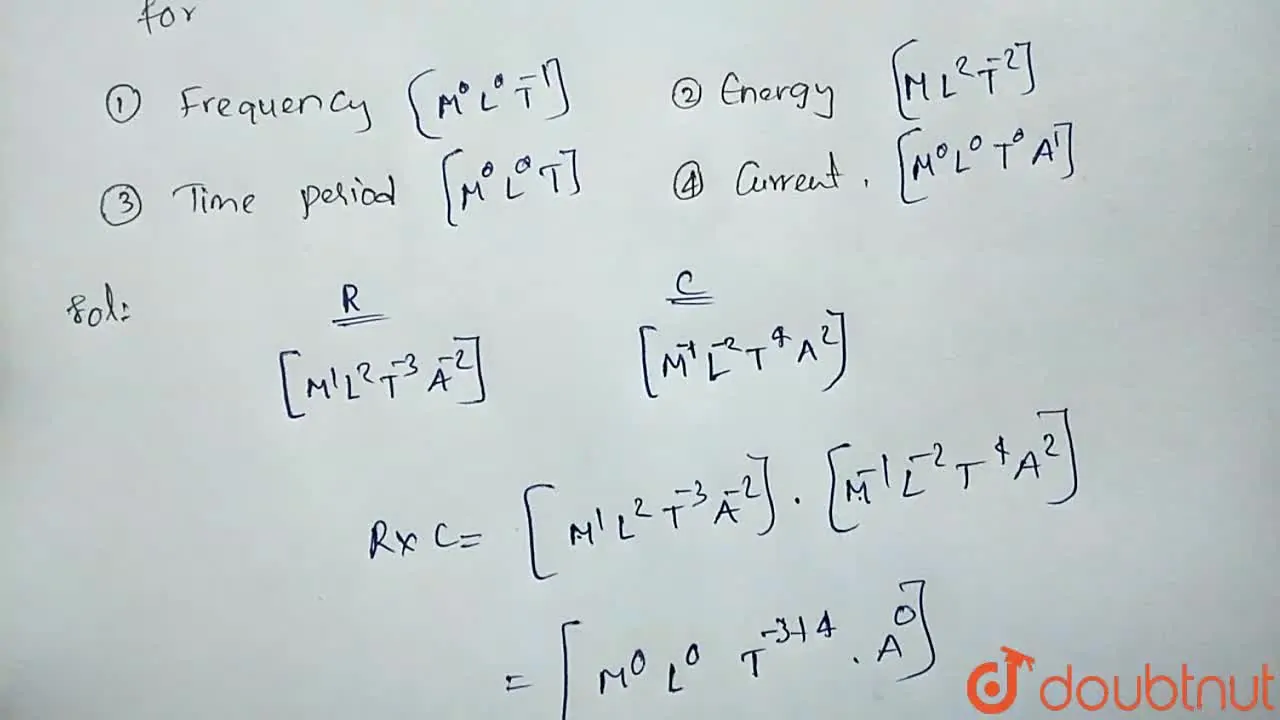 for
① Frequency [M⁰ L⁰ T⁻¹] ② Energy [M L² T⁻²]
③ Time period [M⁰ L⁰ T] ④ Current. [M⁰ L⁰ T⁰ A¹]
Sol:
R C
[M¹ L² T⁻³ A⁻²] [M⁻¹ L⁻² T⁴ A²]
R × C = [M¹ L² T⁻³ A⁻²] . [M⁻¹ L⁻² T⁴ A²]
= [M⁰ L⁰ T⁻³⁺⁴ . A⁰]
doubtnut